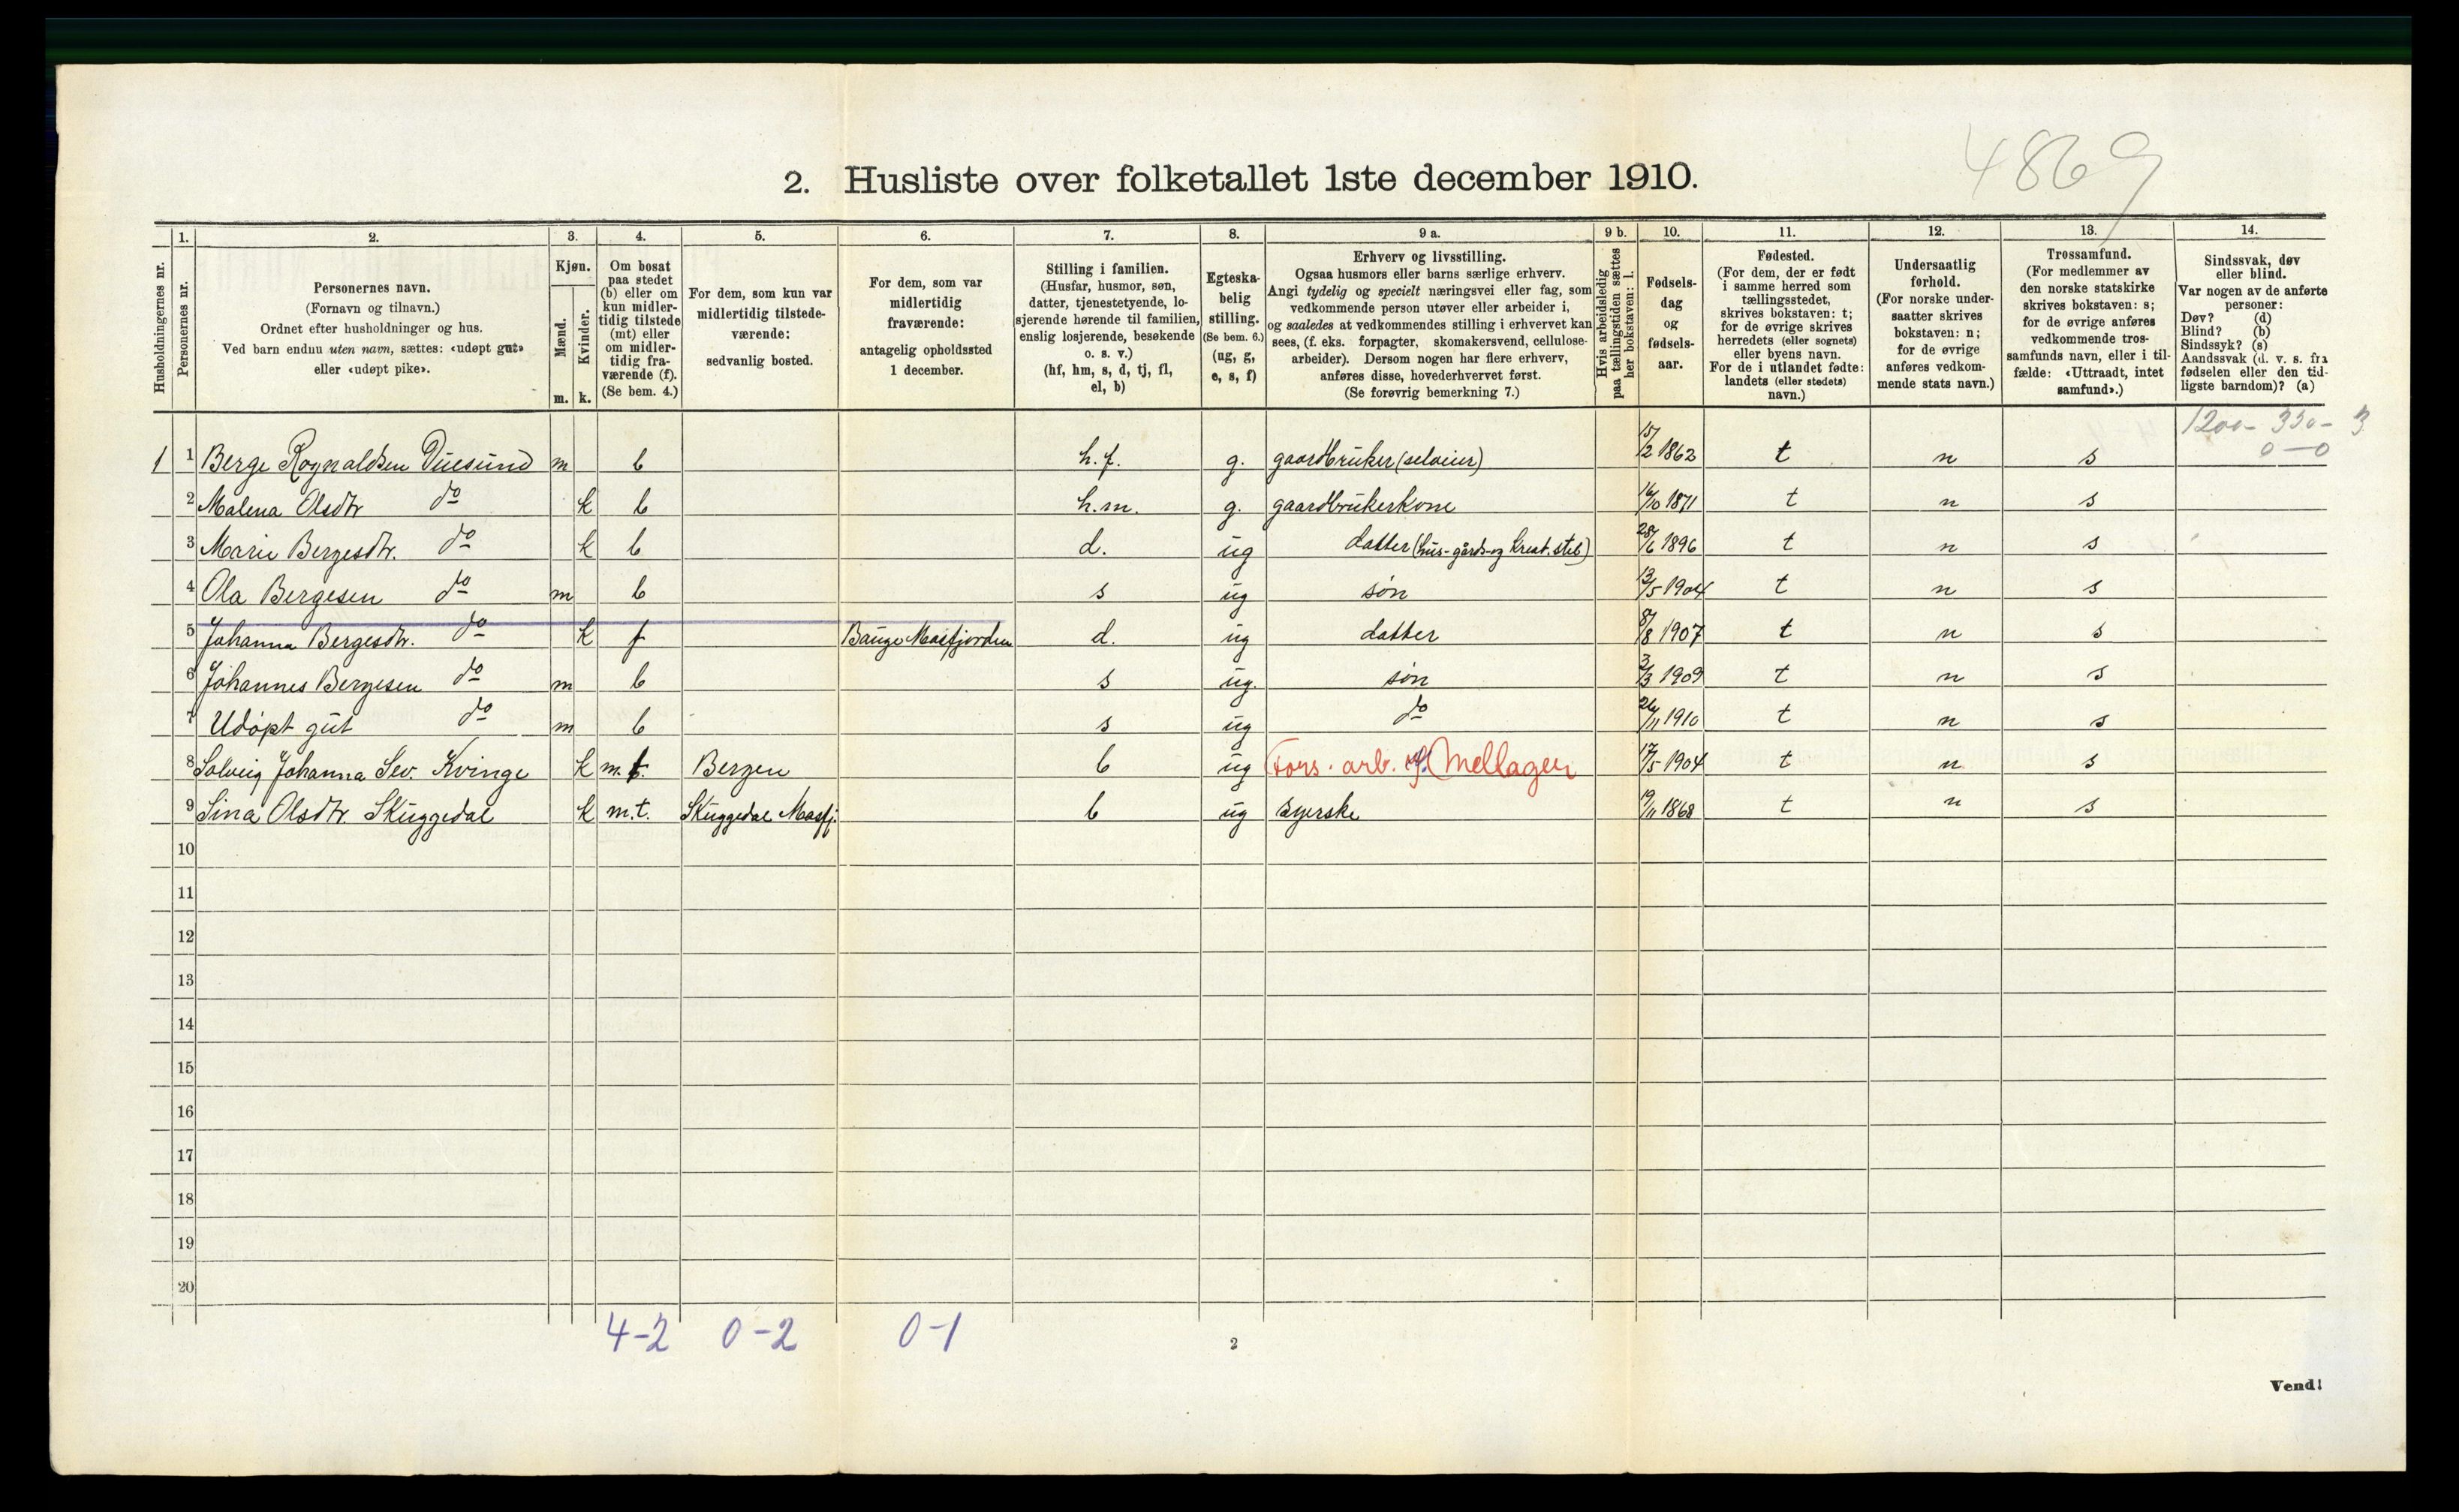 4869
2. Husliste over folketallet 1ste december 1910.
Husholdningernes nr.
1.
Personernes nr.
2.
Personernes navn.
(Fornavn og tilnavn.)
Ordnet efter husholdninger og hus.
Ved barn endnu uten navn, sættes: «udøpt gut»
eller «udøpt pike».
3.
Kjøn.
Mænd.
Kvinder.
m. k.
4.
Om bosat
paa stedet
(b) eller om
kun midler-
tidig tilstede
(mt) eller
om midler-
tidig fra-
værende (f).
(Se bem. 4.)
5.
For dem, som kun var
midlertidig tilstede-
værende:
sedvanlig bosted.
6.
For dem, som var
midlertidig
fraværende:
antagelig opholdssted
1 december.
7.
Stilling i familien.
(Husfar, husmor, søn,
datter, tjenestetyende, lo-
sjerende hørende til familien,
enslig losjerende, besøkende
o. s. v.)
(hf, hm, s, d, tj, fl,
el, b)
8.
Egteska-
belig
stilling.
(Se bem. 6.)
(ug, g,
e, s, f)
9 a.
Erhverv og livsstilling.
Ogsaa husmors eller barns særlige erhverv.
Angi tydelig og specielt næringsvei eller fag, som
vedkommende person utøver eller arbeider i,
og saaledes at vedkommendes stilling i erhvervet kan
sees, (f. eks. forpagter, skomakersvend, cellulose-
arbeider). Dersom nogen har flere erhverv,
anføres disse, hovederhvervet først.
(Se forøvrig bemerkning 7.)
9 b.
Hvis arbeidsledig
paa tællingstiden sættes
her bokstaven: l.
10.
Fødsels-
dag
og
fødsels-
aar.
11.
Fødested.
(For dem, der er født
i samme herred som
tællingsstedet,
skrives bokstaven: t;
for de øvrige skrives
herredets (eller sognets)
eller byens navn.
For de i utlandet fødte:
landets (eller stedets)
navn.)
12.
Undersaatlig
forhold.
(For norske under-
saatter skrives
bokstaven: n;
for de øvrige
anføres vedkom-
mende stats navn.)
13.
Trossamfund.
(For medlemmer av
den norske statskirke
skrives bokstaven: s;
for de øvrige anføres
vedkommende tros-
samfunds navn, eller i til-
fælde: «Uttraadt, intet
samfund».)
14.
Sindssvak, døv
eller blind.
Var nogen av de anførte
personer:
Døv? (d)
Blind? (b)
Sindssyk? (s)
Aandssvak (d. v. s. fra
fødselen eller den tid-
ligste barndom)? (a)
1200- 330- 3
0-0
1 1 Berge Rognaldsen Duesund m b h.f. g. gaardbruker (selveier) 15/2 1862 t n s
2 Malena Olsdtr do k b h.m. g. gaardbrukerkone 16/10 1871 t n s
3 Marie Bergesdtr. do k b d. ug datter (hus-gårds-og kreat. stel) 28/6 1896 t n s
4 Ola Bergesen do m b s ug søn 13/5 1904 t n s
5 Johanna Bergesdtr. do k f Bauge Masfjorden d. ug datter 8/8 1907 t n s
6 Johannes Bergesen do m b s ug. søn 3/3 1909 t n s
7 Udøpt gut do m b s ug do 26/11 1910 t n s
8 Solveig Johanna Sev. Kvinge k m.t. Bergen b ug Fors. arb. (Mellager 17/5 1904 t n s
9 Sina Olsdtr Skuggedal k m.t. Skuggedal Masfj. b ug syerske 19/11 1868 t n s
10
11
12
13
14
15
16
17
18
19
20
4-2 0-2 0-1
2
Vend!